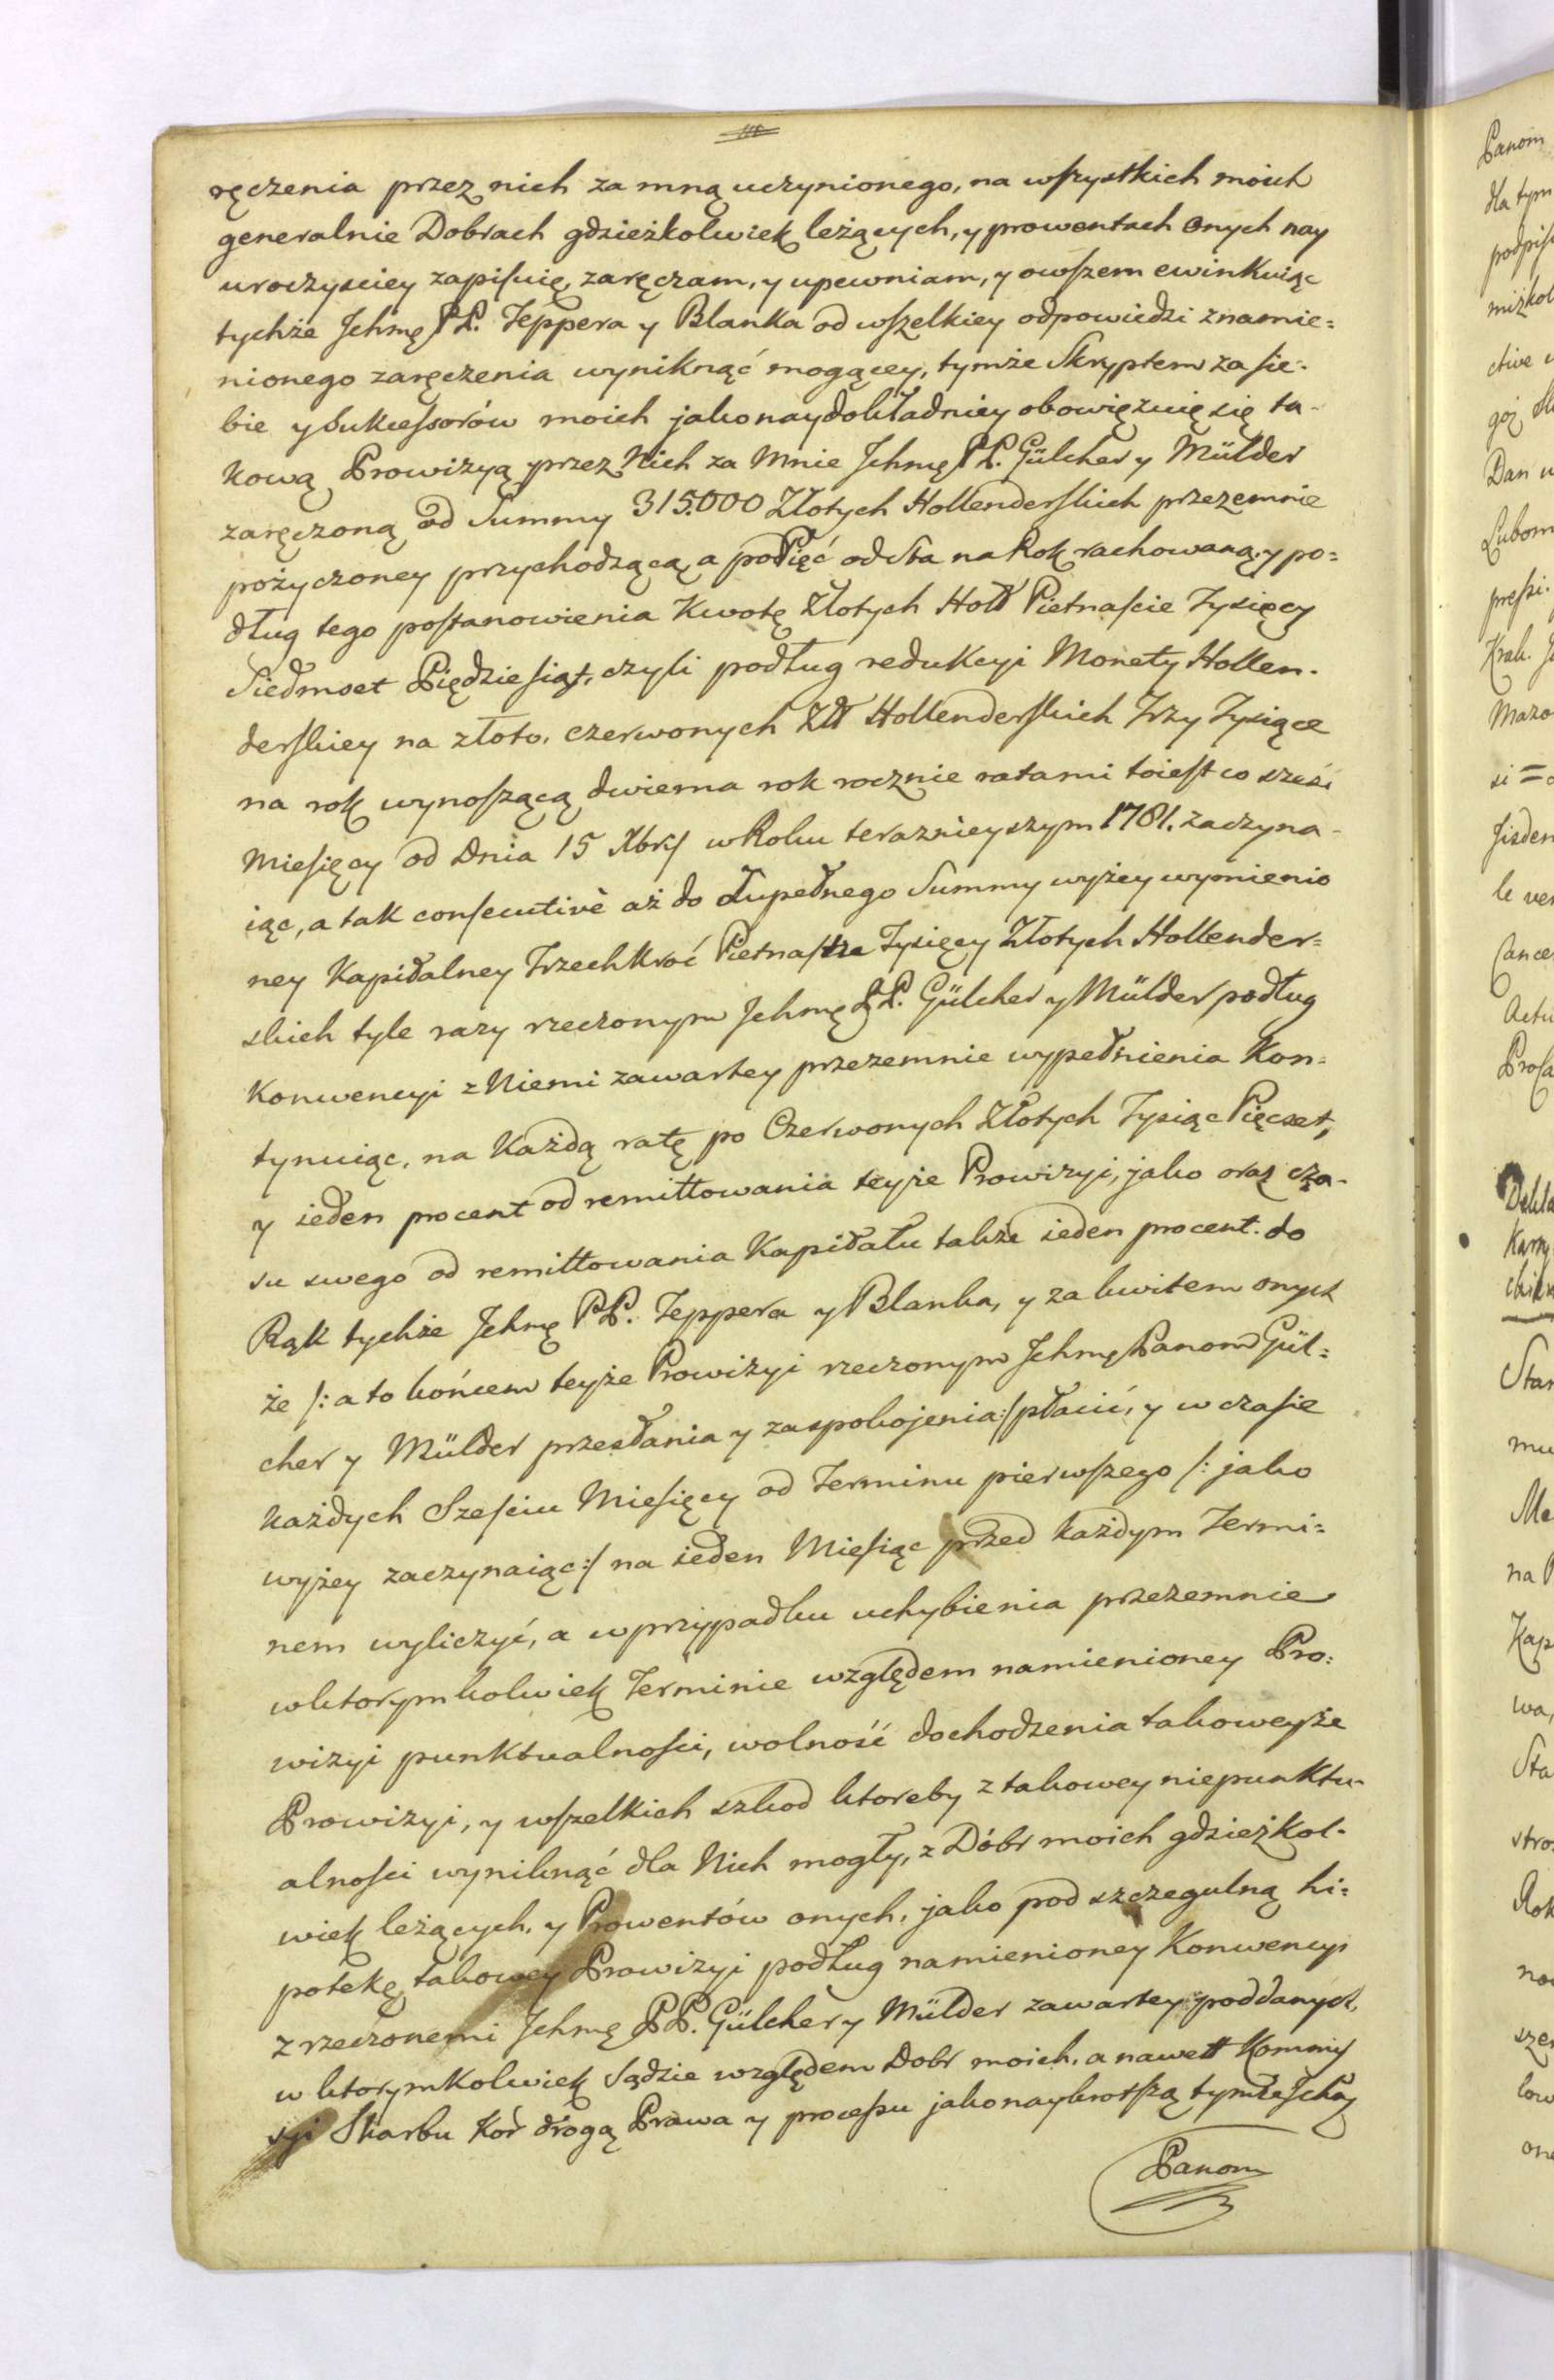 ręczenia przez nich za mną uczynionego, na wszystkich moich
generalnie Dobrach gdzieżkolwiek leżących, y prowentach onych nay
uroczyściey zapisuię, zaręczam, y upewniam, y owszem ewinkuiąc
tychże Jchmę PP. Teppera y Blanka od wszelkiey odpowiedzi znamie=
nionego zaręczenia wyniknąć mogącey, tymże Skryptem za sie=
bie y Sukcessorów moich jako naydokładniey obowięzuię się ta-
kową Prowizyą przez Nich za Mnie Jchmę PP. Gülcher y Mülder
zaręczoną od Summy 315.000 Złotych Hollenderskich przezemnie
pożyczoney przychodzącą a po Pięć od Sta na Rok rachowaną, y po=
dług tego postanowienia Kwotę Złotych Holl Pietnaście Tysięcy
Siedmset Piędziesiąt, czyli podług redukcyi Monety Hollen-
derskiey na złoto, czerwonych Złł Hollenderskich Trzy Tysiące
na rok wynoszącą dwiema rok rocznie ratami toiest co sześć
Miesięcy od Dnia 15 Xbris w Roku teraznieyszym 1781. zaczyna-
iąc, a tak consecutivè aż do Zupełnego Summy wyżey wymienio
ney Kapitalney Trzechkroć Pietnastu Tysięcy Złotych Hollender=
skich tyle razy rzeczonym Jchmę PP. Gülcher y Mülder podług
Konwencyi z Niemi zawartey przezemnie wypełnienia Kon=
tynuiąc, na Każdą ratę po Czerwonych Złotych Tysiąc Pięcset,
y ieden procent od remittowania teyże Prowizyi, jako oraz cza-
su swego od remittowania Kapitału także ieden procent do
Rąk tychże Jchmę PP. Teppera y Blanka, y za kwitem onych
że /: a to końcem teyże Prowizyi rzeczonym Jchmę Panom Gül=
cher y Mülder przesłania y zaspokojenia :/ płacić, y w czasie
każdych Sześciu Miesięcy od Terminu pierwszego /: jako
wyżey zaczynaiąc :/ na ieden Miesiąc przed każdym Termi=
nem wyliczyć, a w przypadku uchybienia przezemnie
w ktorymkolwiek Terminie względem namienioney Pro=
wizyi punktualności, wolność dochodzenia takoweyże
Prowizyi, y wszelkich szkod ktoreby z takowey niepunktu-
alności wyniknąć dla Nich mogły, z Dóbr moich gdzieżkol-
wiek leżących, y Prowentów onych, jako pod szczegulną hi=
potekę takowey Prowizyi podług namienioney Konwencyi
z rzeczonemi Jchmę PP. Gülcher y Mülder zawartey poddanych,
w ktorymkolwiek Sądzie względem Dobr moich, a nawett Kommis
syi Skarbu Kor drogą Prawa y processu jako naykrotszą tymże Jchmę
Panom